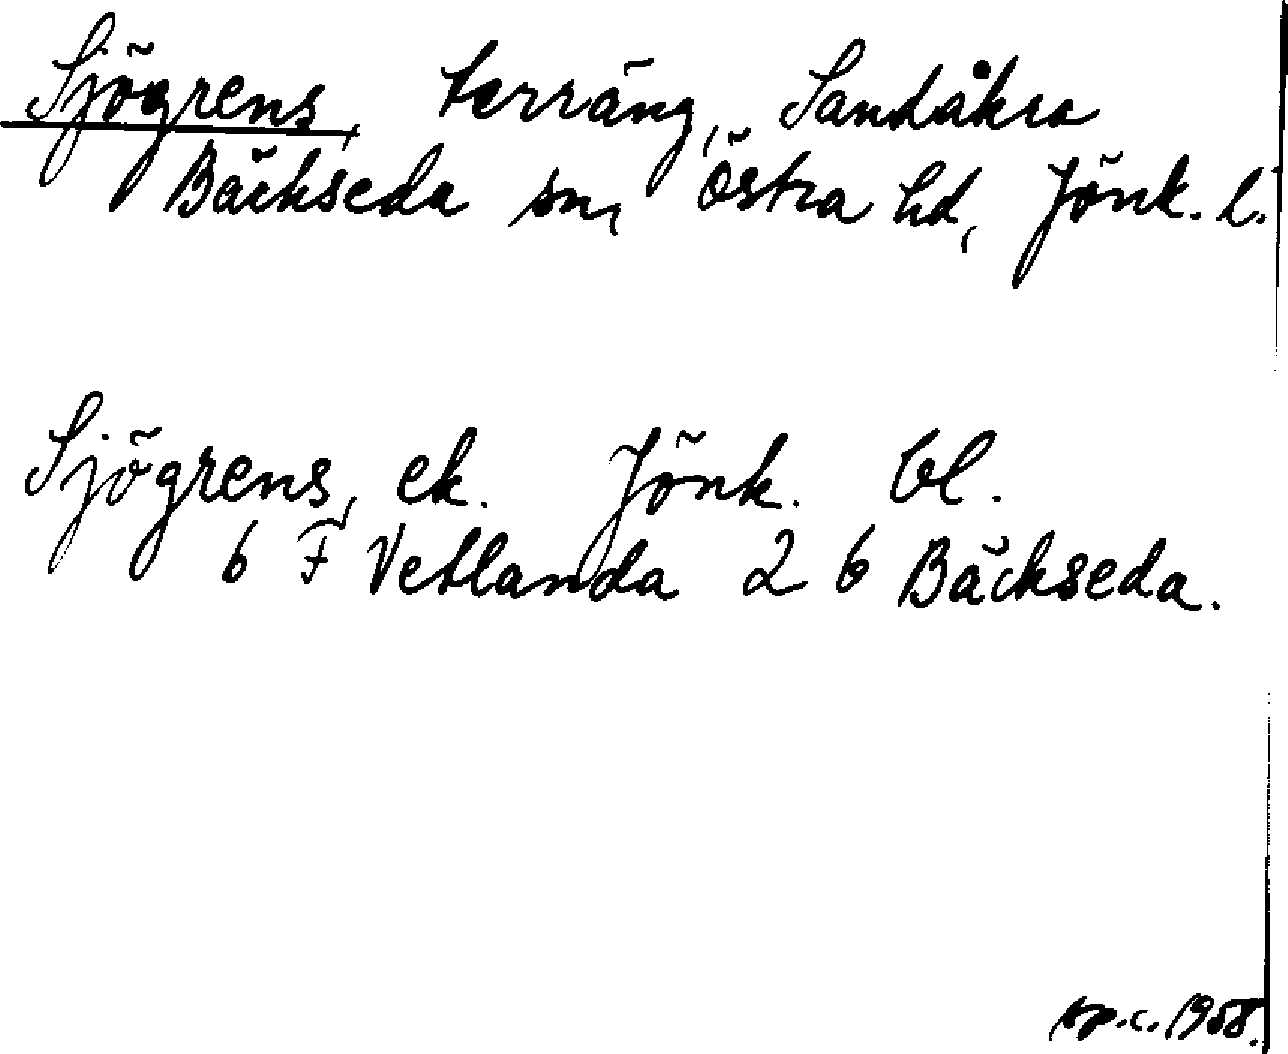 Sjögrens, terräng, Sandåkra
Bäckseda sn, Östra hd, Jönk. l.
Sjögrens, ek. Jönk. bl.
6 F Vetlanda 2 b Bäckseda.
1958.